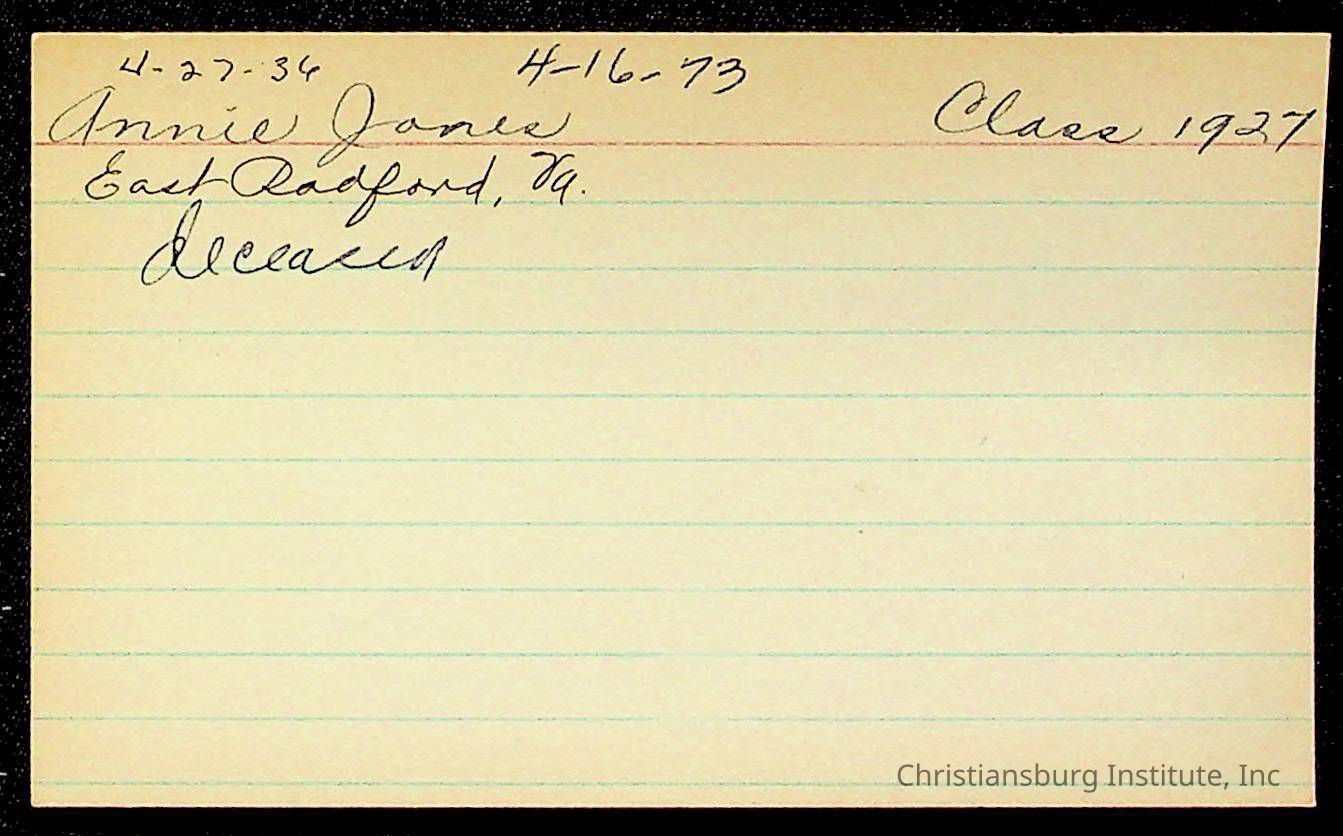 4-27-36 4-16-73
Annie Jones Class 1927
East Radford, Va.
deceased
Christiansburg Institute, Inc